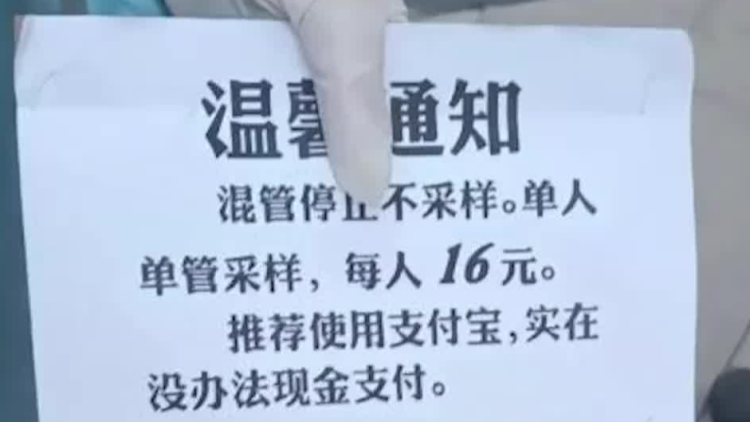 温馨通知
混管停止不采样。单人
单管采样，每人16元。
推荐使用支付宝，实在
没办法现金支付。